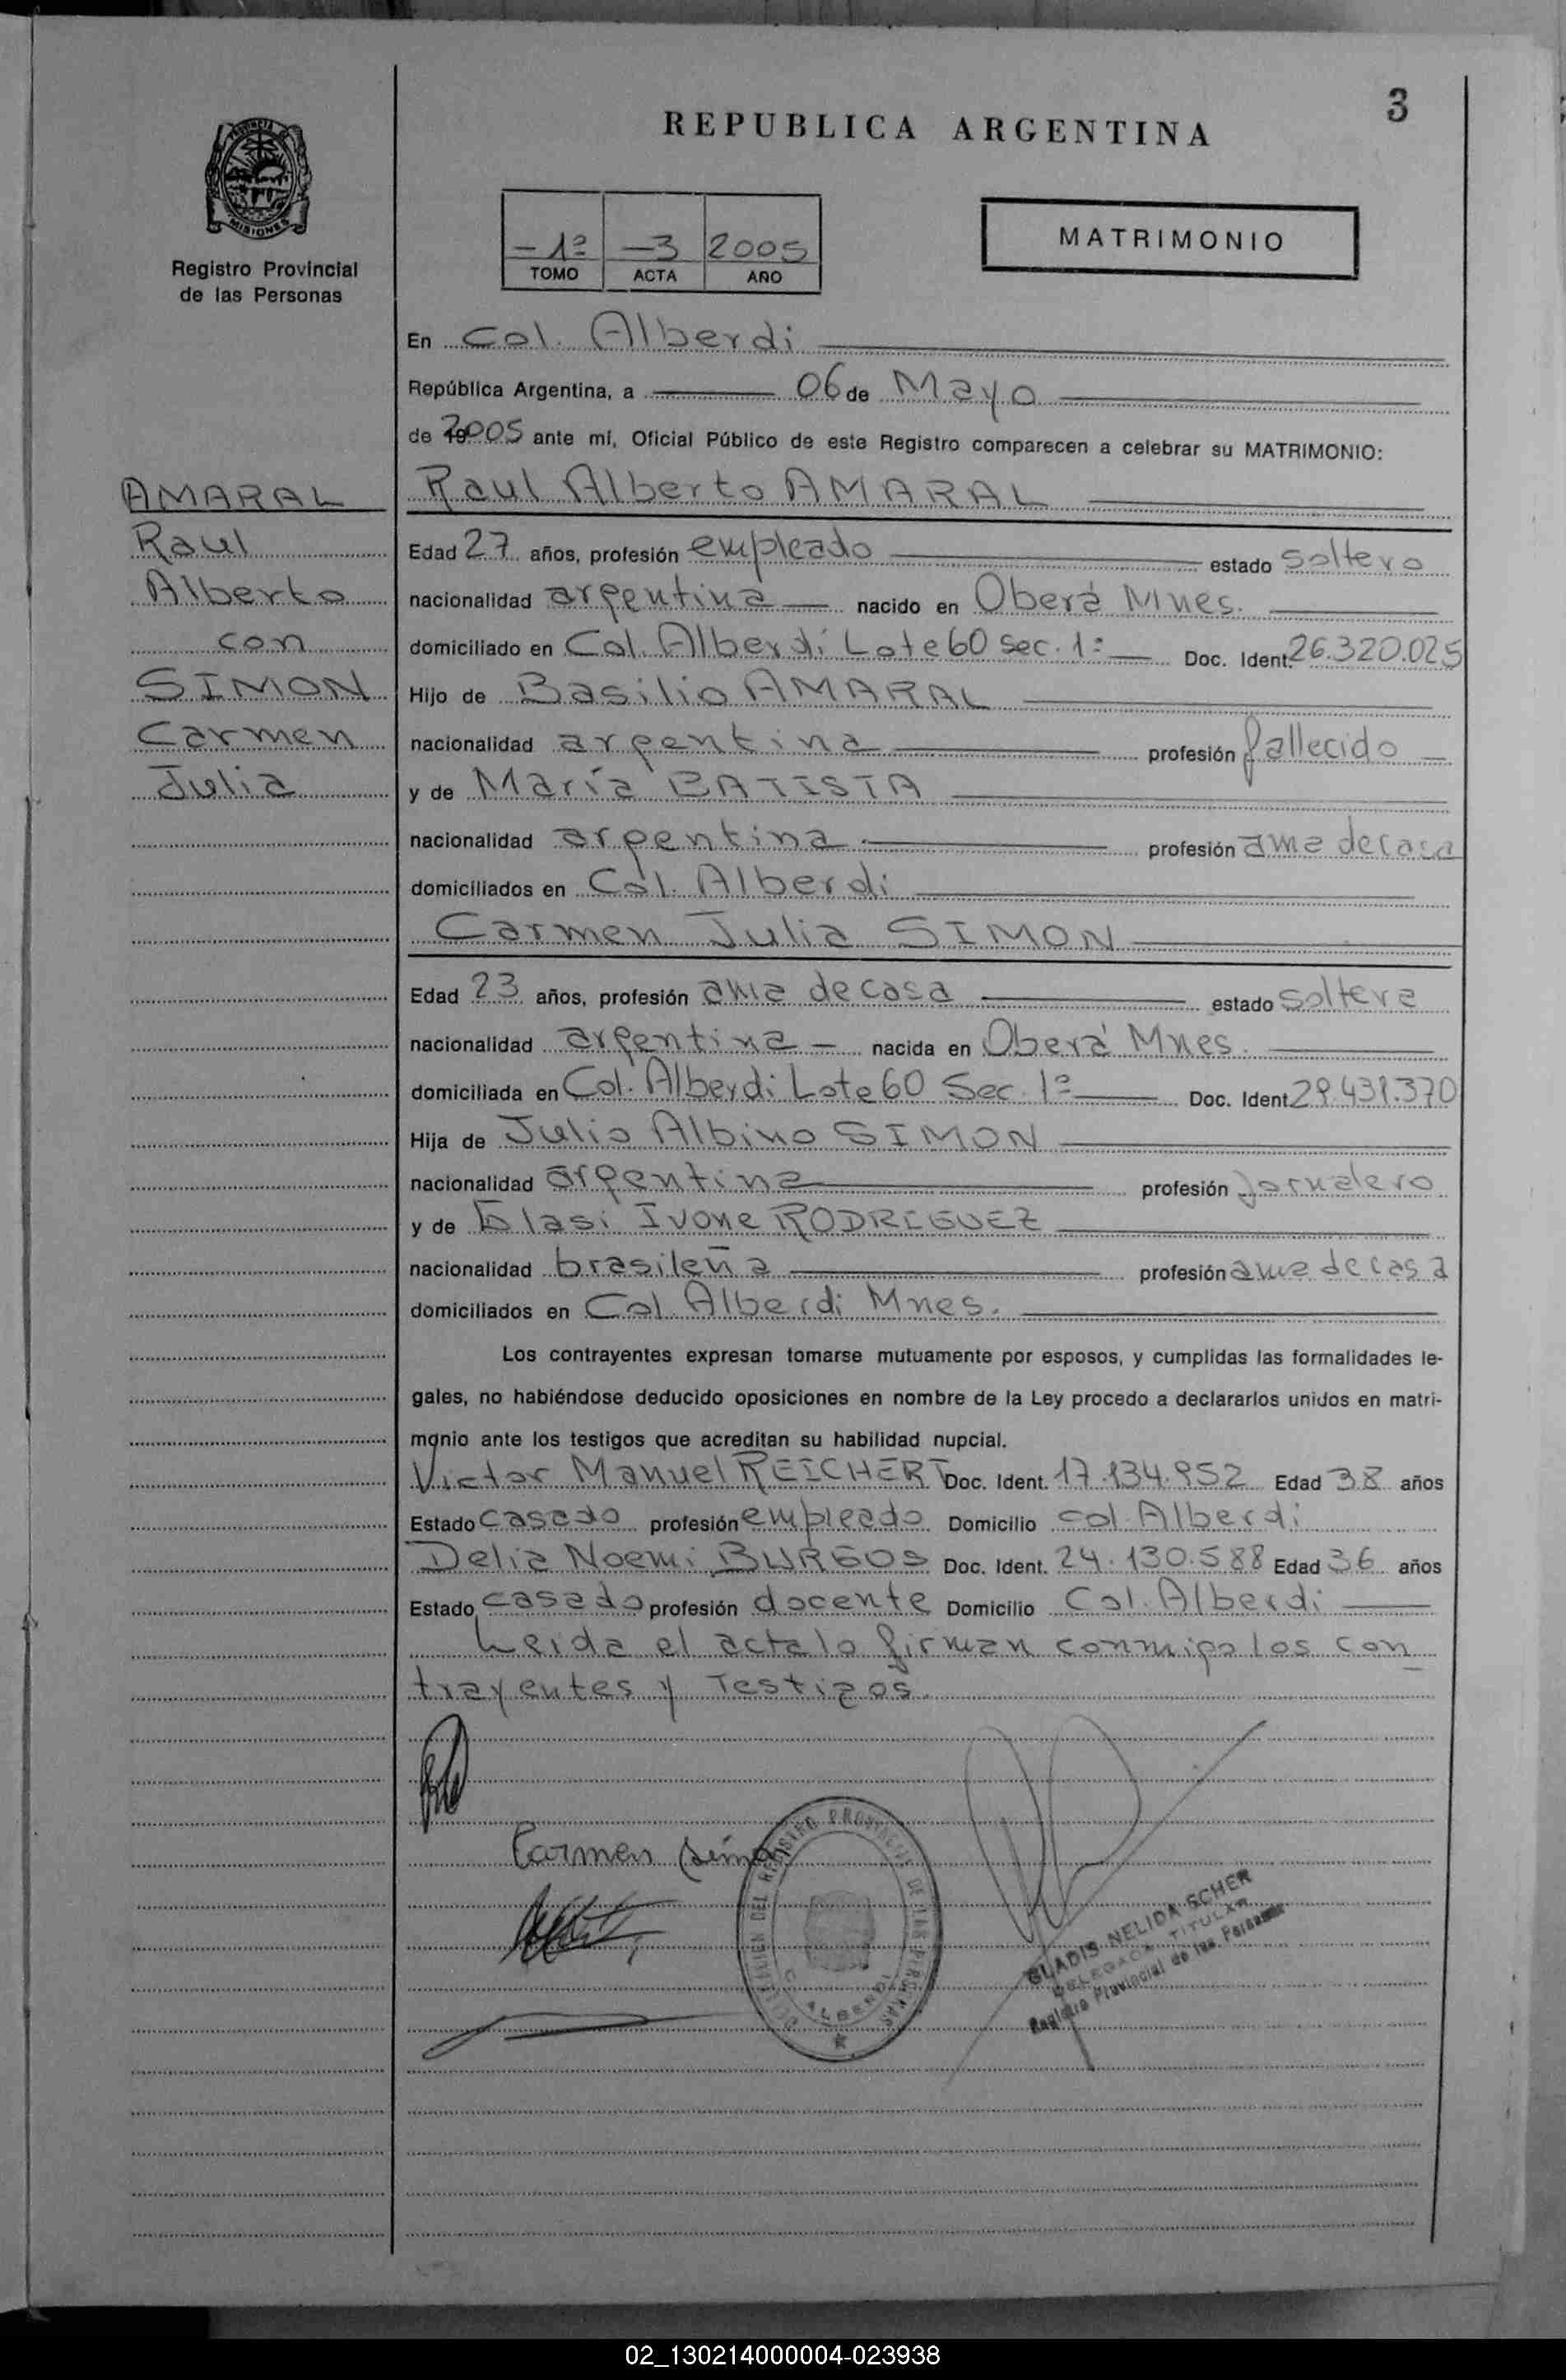 3
REPUBLICA ARGENTINA
MISIONES
Registro Provincial
de las Personas
- 1º -3 2005
TOMO ACTA AÑO
MATRIMONIO
En Col. Alberdi
República Argentina, a 06 de Mayo
de 2005 ante mí, Oficial Público de este Registro comparecen a celebrar su MATRIMONIO:
AMARAL
Raul
Alberto
con
SIMON
Carmen
Julia
Raul Alberto AMARAL
Edad 27 años, profesión empleado estado soltero
nacionalidad argentina nacido en Oberá Mnes.
domiciliado en Col. Alberdi Lote 60 sec. 1º Doc. Ident. 26.320.025
Hijo de Basilio AMARAL
nacionalidad argentina profesión fallecido
y de María BATISTA
nacionalidad argentina profesión ama de casa
domiciliados en Col. Alberdi
Carmen Julia SIMON
Edad 23 años, profesión ama de casa estado soltera
nacionalidad argentina nacida en Oberá Mnes.
domiciliada en Col. Alberdi Lote 60 Sec. 1º Doc. Ident. 29.431.370
Hija de Julio Albino SIMON
nacionalidad argentina profesión Jornalero
y de Ivone RODRIGUEZ
nacionalidad brasileña profesión ama de casa
domiciliados en Col. Alberdi Mnes.
Los contrayentes expresan tomarse mutuamente por esposos, y cumplidas las formalidades le-
gales, no habiéndose deducido oposiciones en nombre de la Ley procedo a declararlos unidos en matri-
monio ante los testigos que acreditan su habilidad nupcial.
Victor Manuel REICHERT Doc. Ident. 17.134.952 Edad 38 años
Estado casado profesión empleado Domicilio col. Alberdi
Delia Noemi BURGOS Doc. Ident. 24.130.588 Edad 36 años
Estado casado profesión docente Domicilio Col. Alberdi
Leida el acta lo firman conmigo los con
trayentes y Testigos.
Carmen Simon
DEL REGISTRO PROVINCIAL DE LAS PERSONAS
C. ALBERDI
GLADIS NELIDA SCHER
DELEGADA TITULAR
Registro Provincial de las Personas
02_130214000004-023938